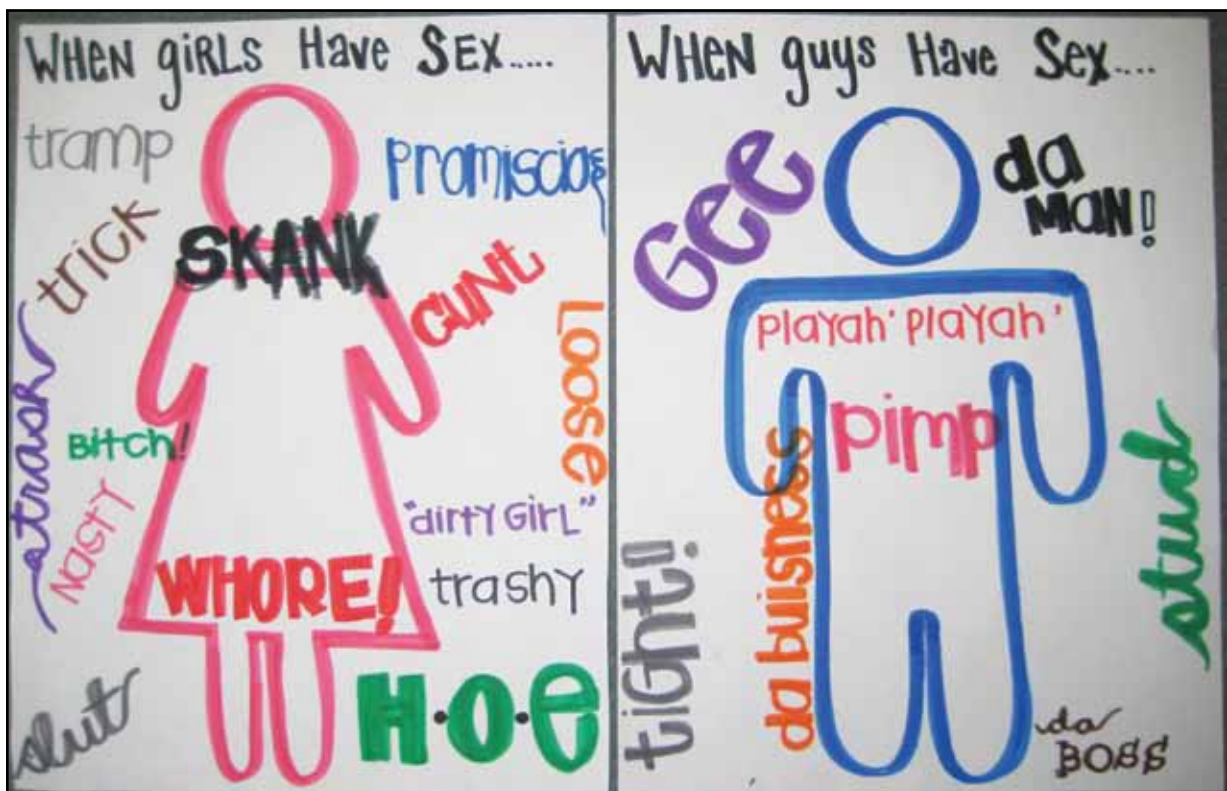 WHEN giRLS Have SEX.....
tramp
PROMiSCiOs
tRiCK
SKANK
CUNT
LOOSE
trash
BitCH!
NASTY
"dirty GirL"
WHORE!
trashy
slut
H•O•E
WHEN guys Have Sex....
Gee
da
MAN!
PlaYaH' PlaYaH'
pimp
da buisness
stud
tiGHt!
da
BOSS